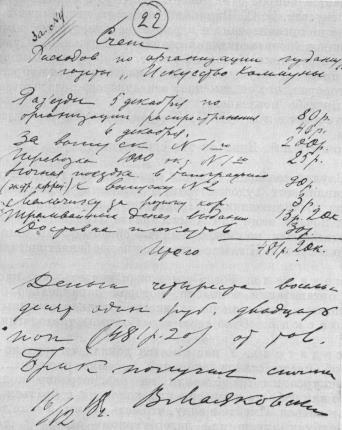 За №4
22
Счет
Расходов по организации издания
газеты „Искусство Коммуны
Разъезды 5 декабря по
организации распространения 80р.
6 декабря. 40р.
За выпуск № 1го 200р.
Перевозка 1000 экз № 1го 25р.
Ночная поездка в типографию
к выпуску № 2 90р.
Мальчику за корр. 3р.
Трамвайных денег выдано 13р. 20к
Доставка плакатов 30р.
Итого 481р. 20к.
Деньги четыреста восемь
десят один руб. двадцать
коп (481р.20) от тов.
Брик получил сполна
16/12 18г. ВМаяковский